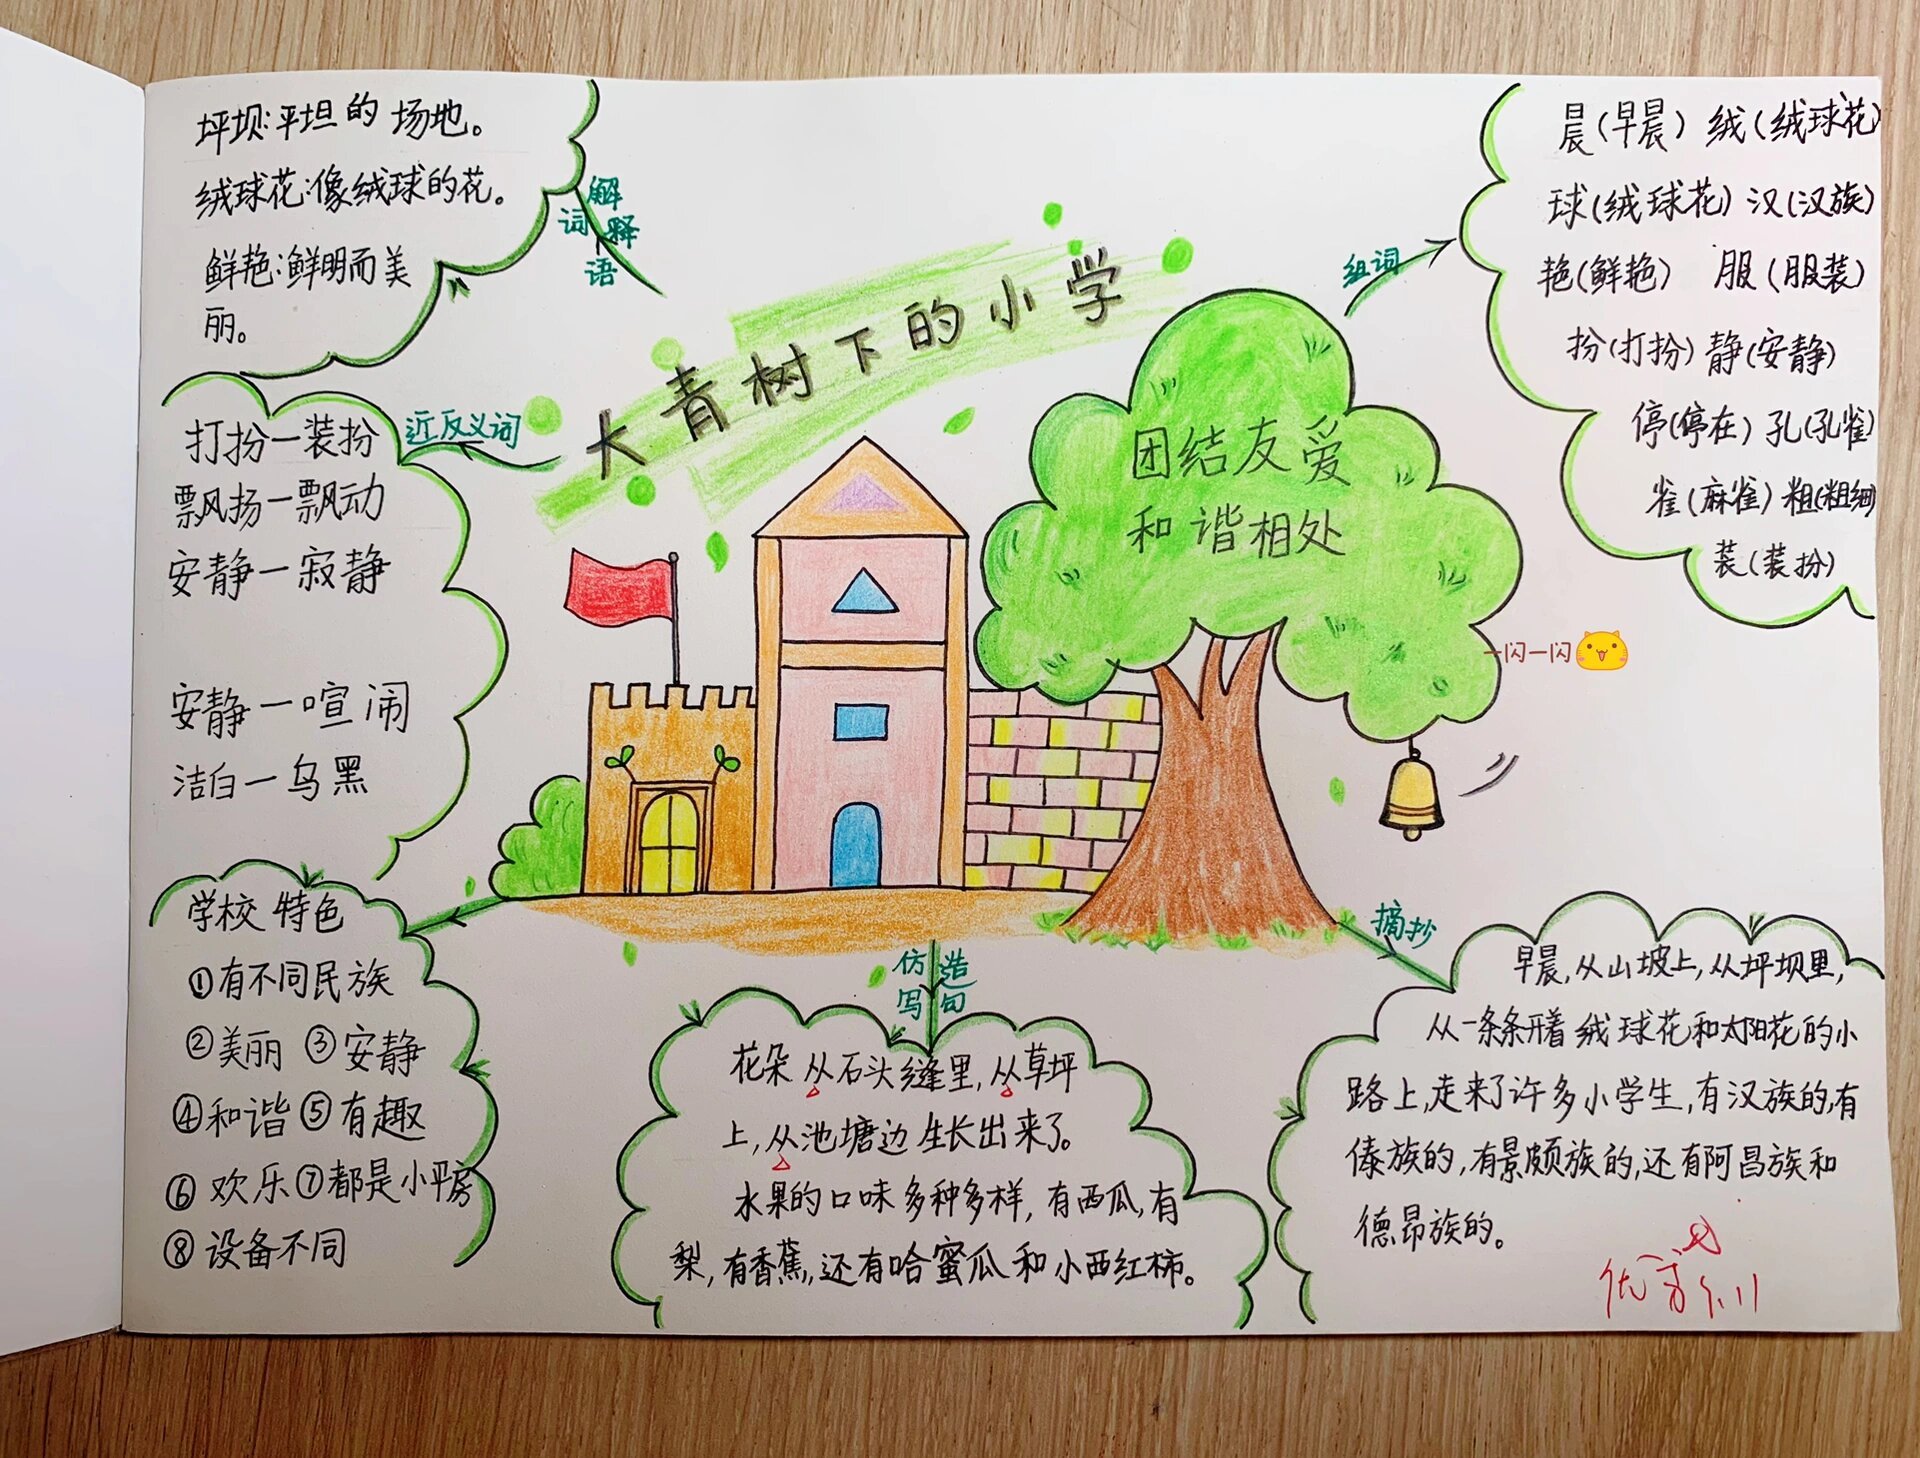 大青树下的小学
团结友爱
和谐相处
解释
词语
坪坝:平坦的场地。
绒球花:像绒球的花。
鲜艳:鲜明而美
丽。
近反义词
打扮—装扮
飘扬—飘动
安静—寂静
安静—喧闹
洁白—乌黑
学校特色
①有不同民族
②美丽 ③安静
④和谐 ⑤有趣
⑥欢乐 ⑦都是小平房
⑧设备不同
仿写
造句
花朵从石头缝里,从草坪
上,从池塘边生长出来了。
水果的口味多种多样,有西瓜,有
梨,有香蕉,还有哈蜜瓜和小西红柿。
组词
晨(早晨) 绒(绒球花)
球(绒球花) 汉(汉族)
艳(鲜艳) 服(服装)
扮(打扮) 静(安静)
停(停在) 孔(孔雀)
雀(麻雀) 粗(粗细)
装(装扮)
一闪一闪
摘抄
早晨,从山坡上,从坪坝里,
从一条条开着绒球花和太阳花的小
路上,走来了许多小学生,有汉族的,有
傣族的,有景颇族的,还有阿昌族和
德昂族的。
优
9.11